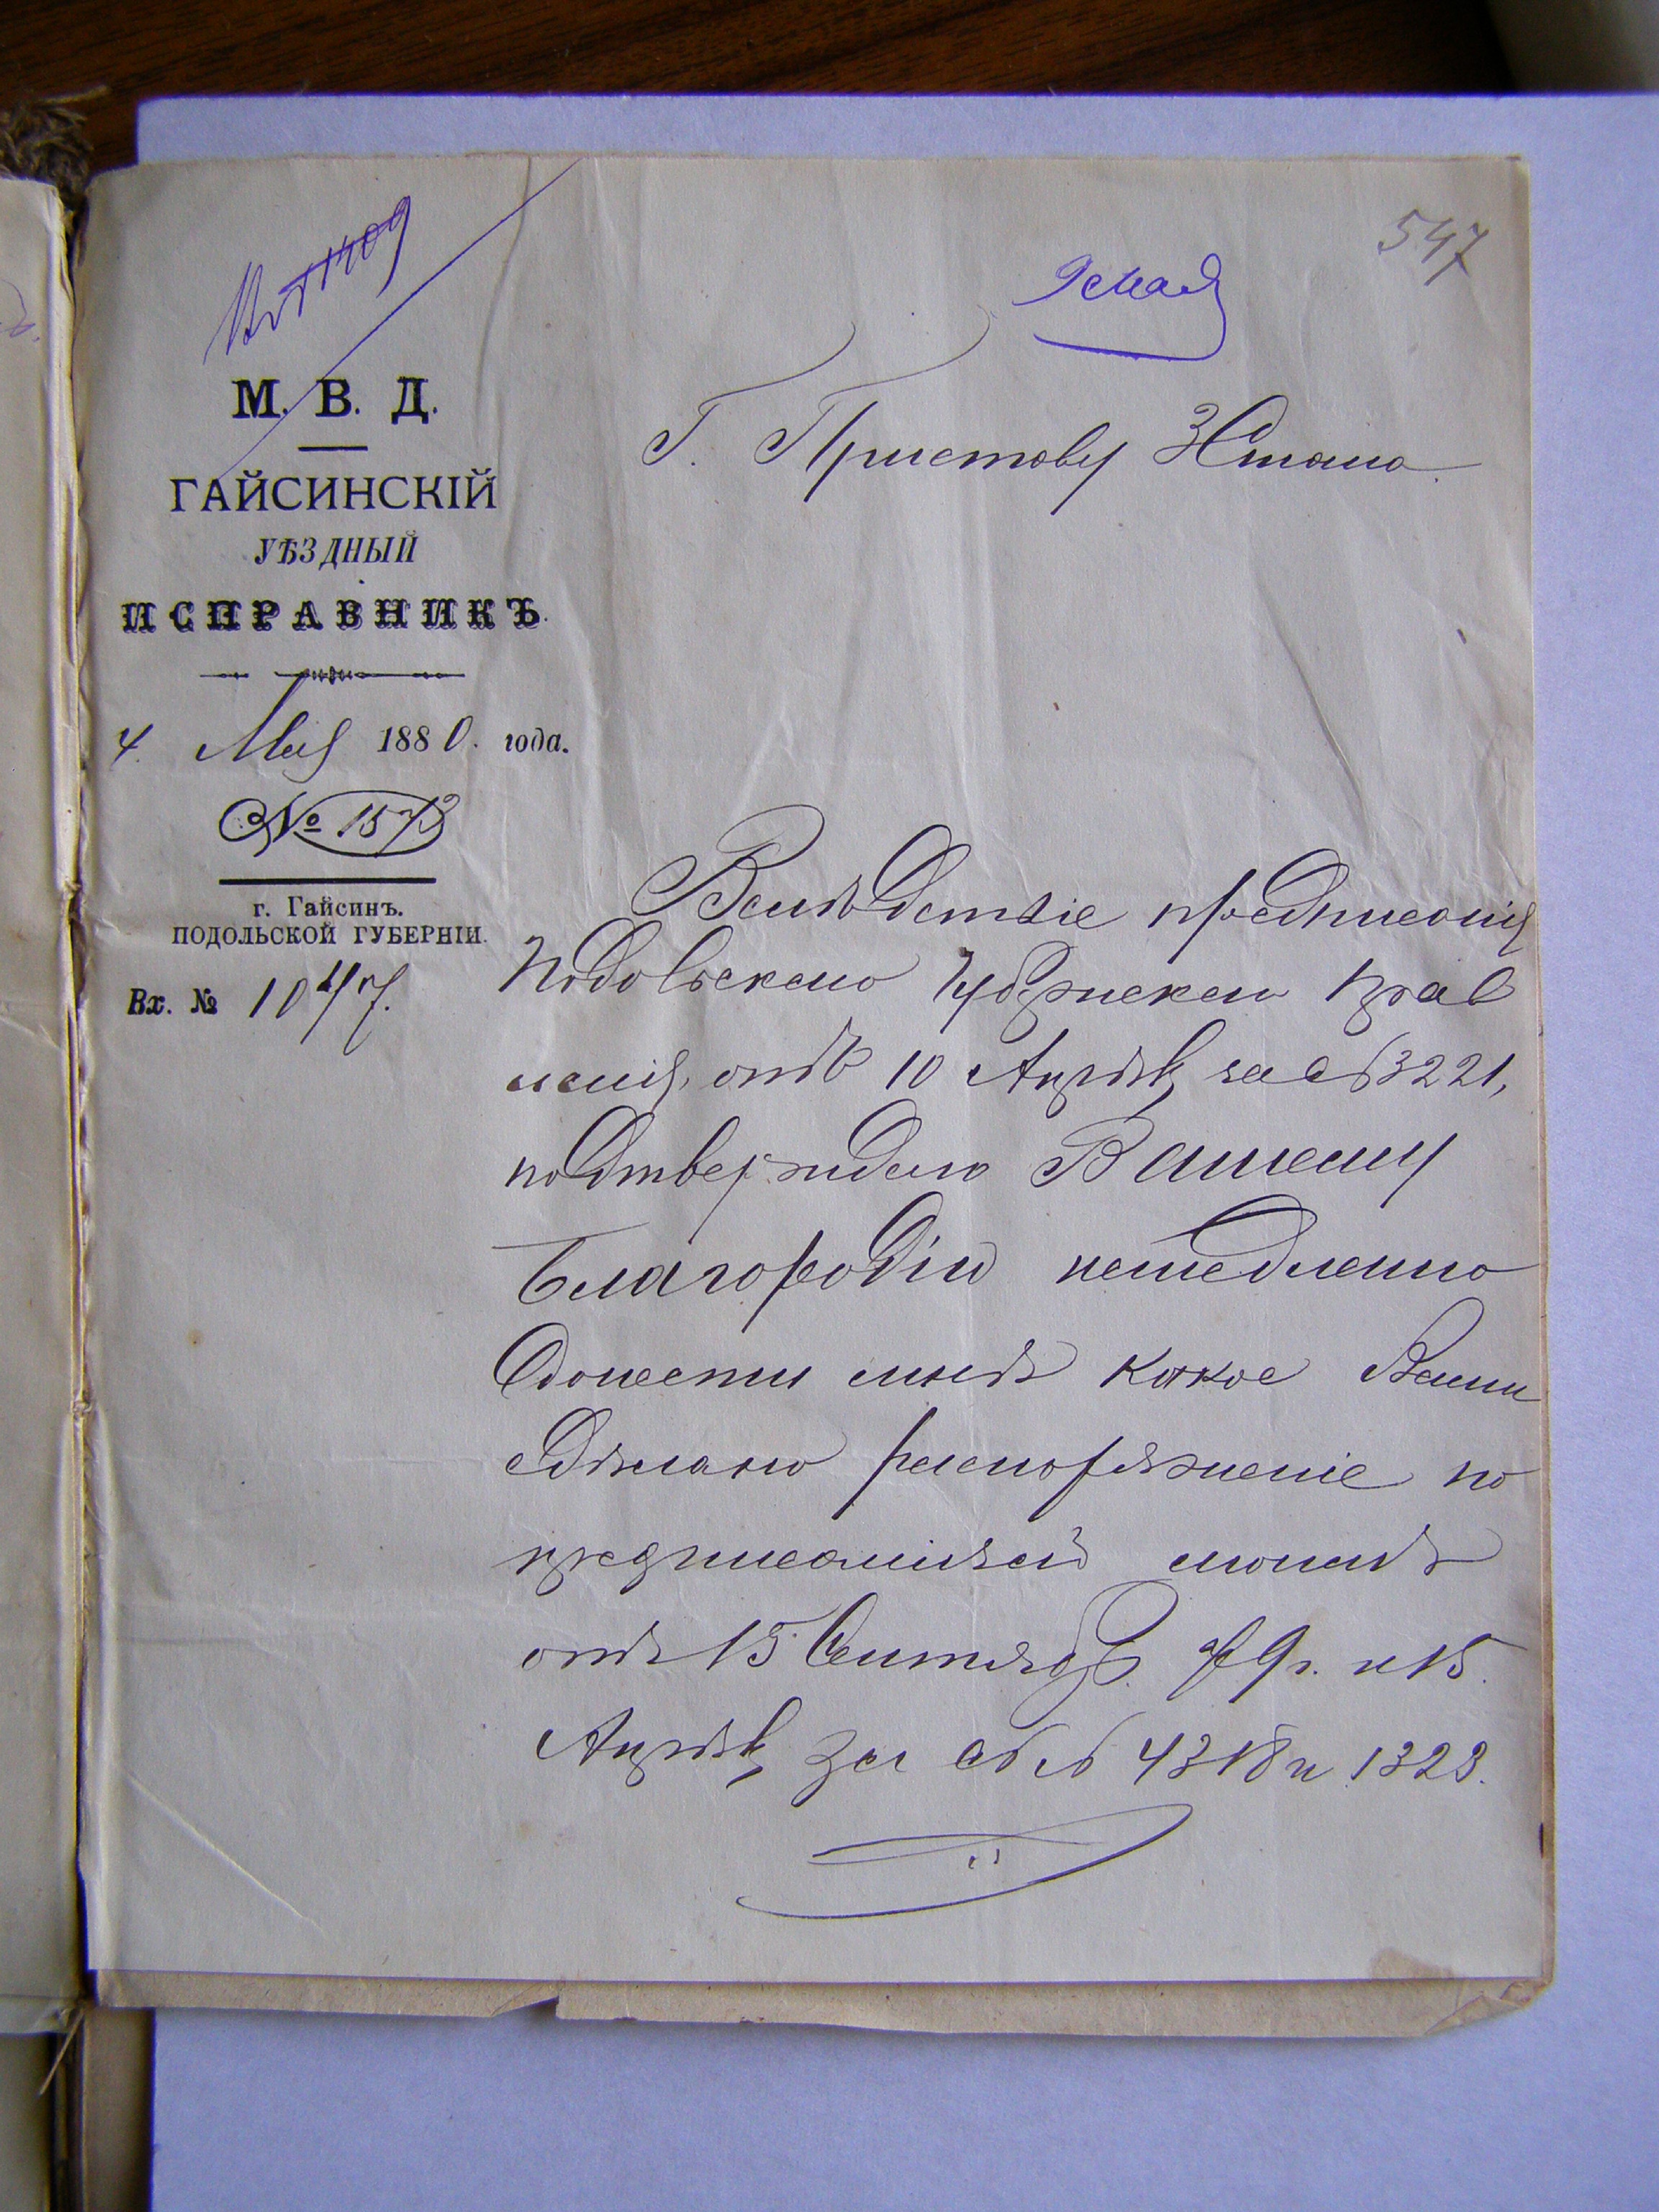 547
9 Мая
М. В. Д.
ГАЙСИНСКІЙ
УѢЗДНЫЙ
ИСПРАВНИКЪ.
4 Мая 1880. года.
№ 1573
г. Гайсинъ.
ПОДОЛЬСКОЙ ГУБЕРНІИ.
Вх. № 1047.
Г. Приставу 3 Стана
Вслѣдствіе предписанія
Подольскаго Губернскаго Прав
ленія, отъ 10 Апрѣля за № 3221,
подтверждаю Вашему
Благородію немедленно
донести мнѣ какое Вами
сдѣлано распоряженіе по
предписаніямъ моимъ
отъ 15 Сентябр. 79 г. и 15
Апрѣля за №№ 4318 и 1323.